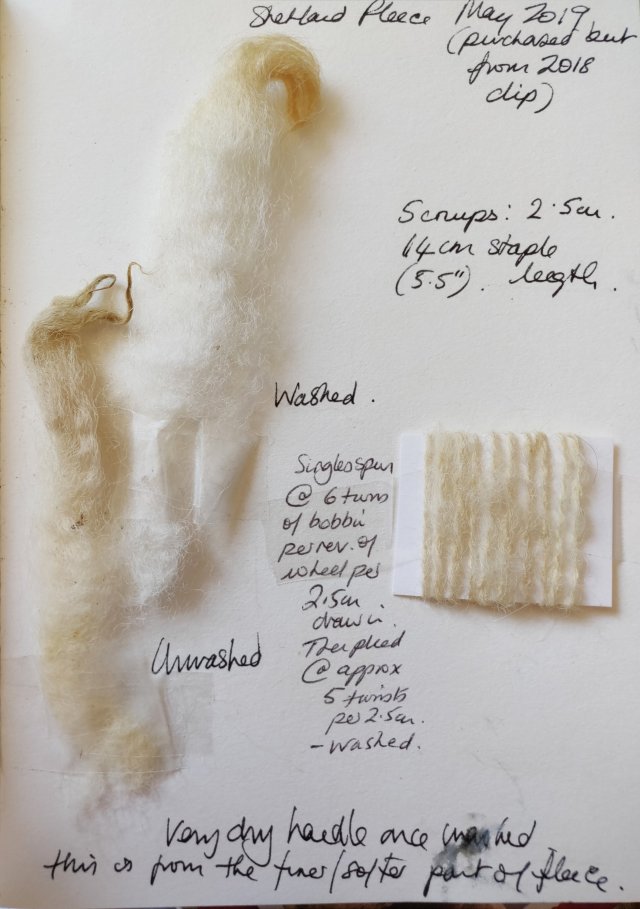 Shetland Fleece May 2019
(purchased but
from 2018
clip)
Scrups: 2.5cm.
14cm staple
(5.5"). length.
Washed.
Singles spun
@ 6 turns
of bobbin
per rev. of
wheel per
2.5cm.
drawn.
Then plied
@ approx
5 twists
per 2.5cm.
- washed.
Unwashed
Very dry handle once washed
this is from the finer/softer part of fleece.